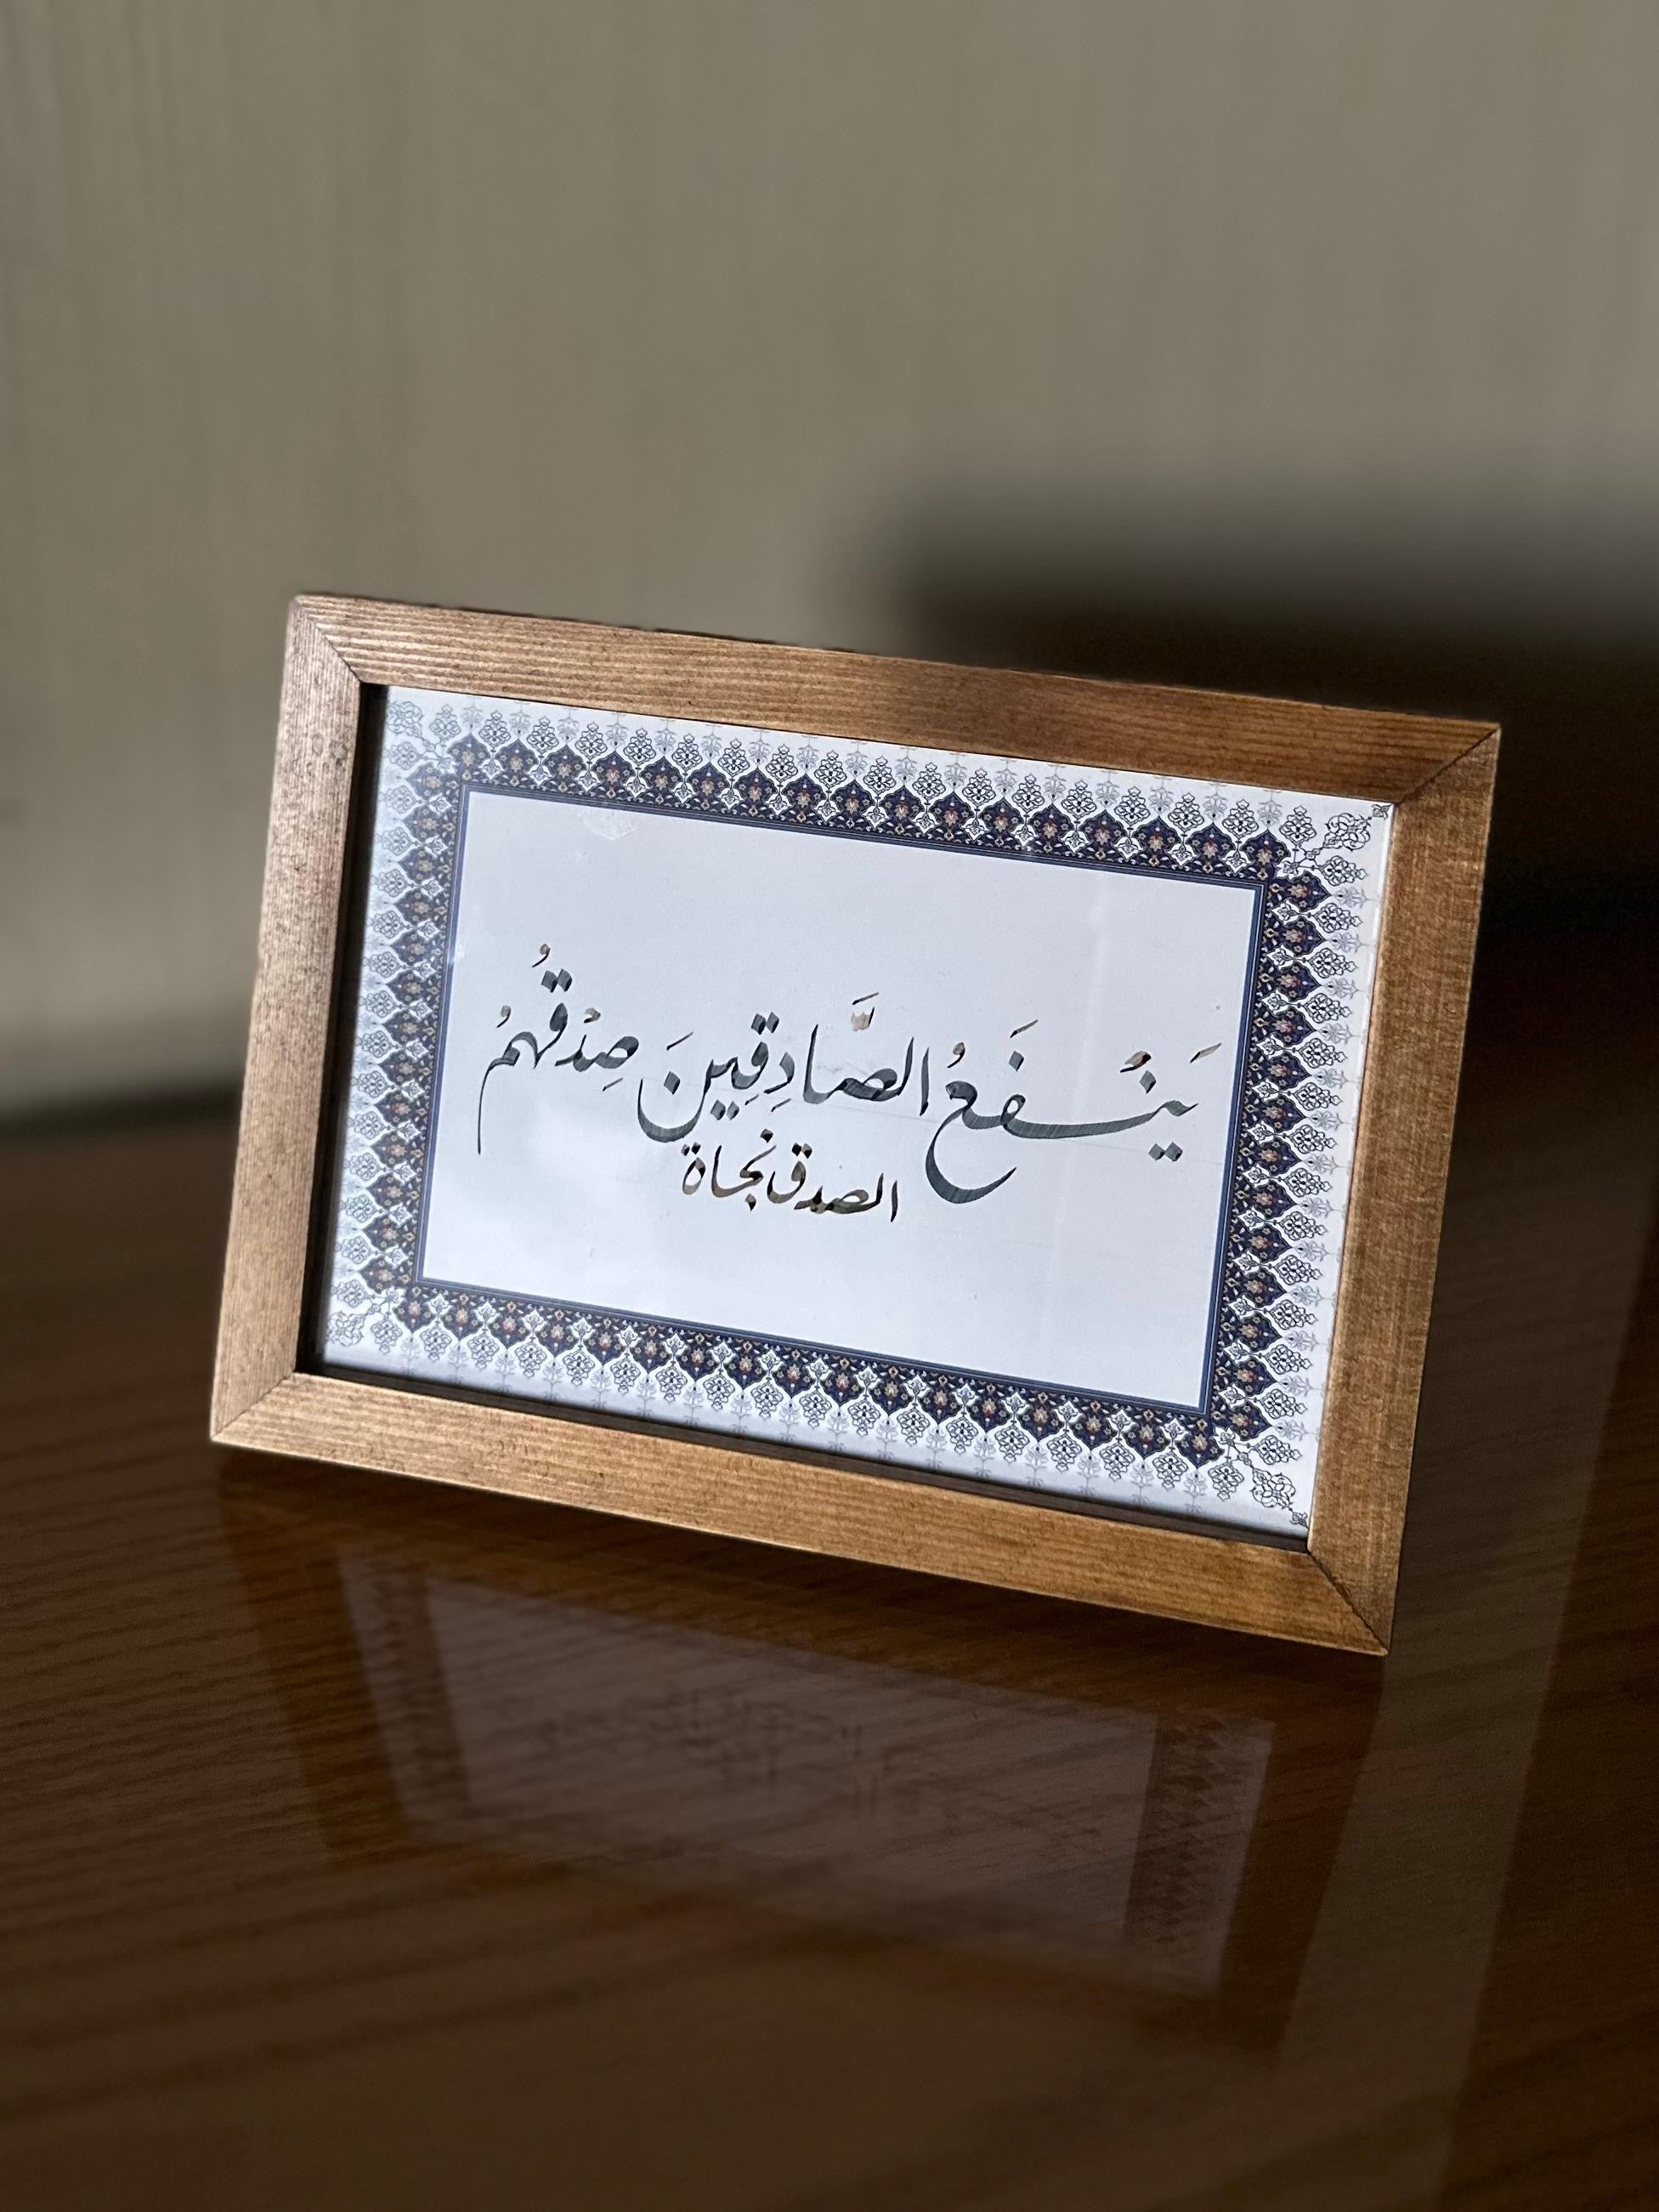 يَنْفَعُ الصَّادِقِينَ صِدْقُهُمُ
الصدق نجاة